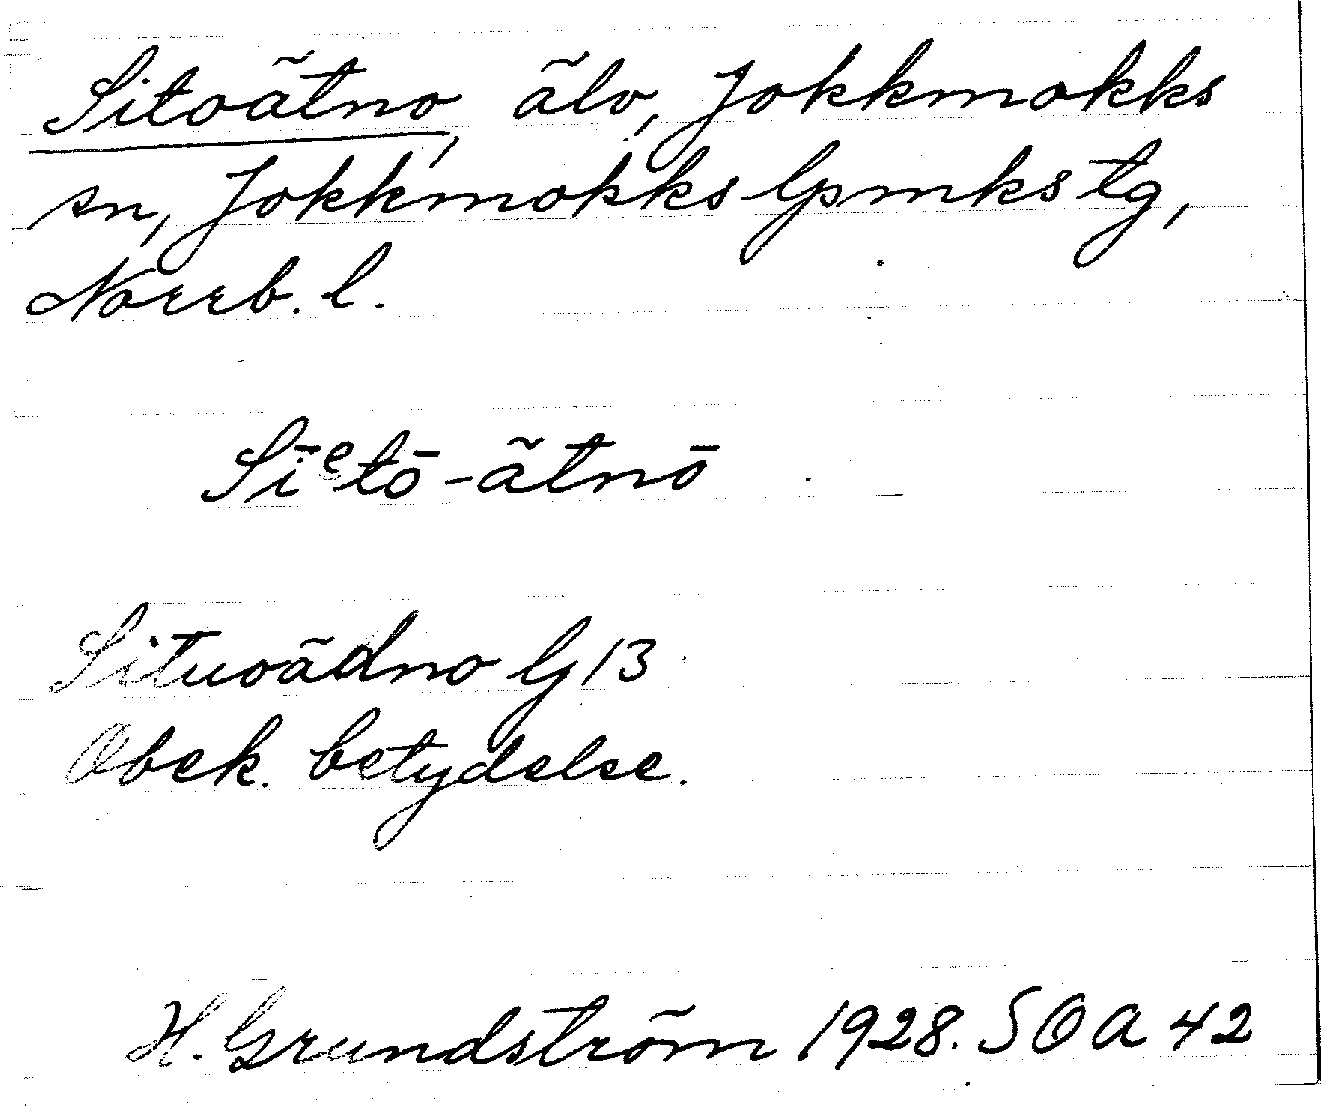 Sitoätno, älv, Jokkmokks
sn, Jokkmokks lpmks tg,
Norrb. l.
Sīᵉtō-ätnō
Situoädno G 13
Obek. betydelse.
H. Grundström 1928. SOA 42